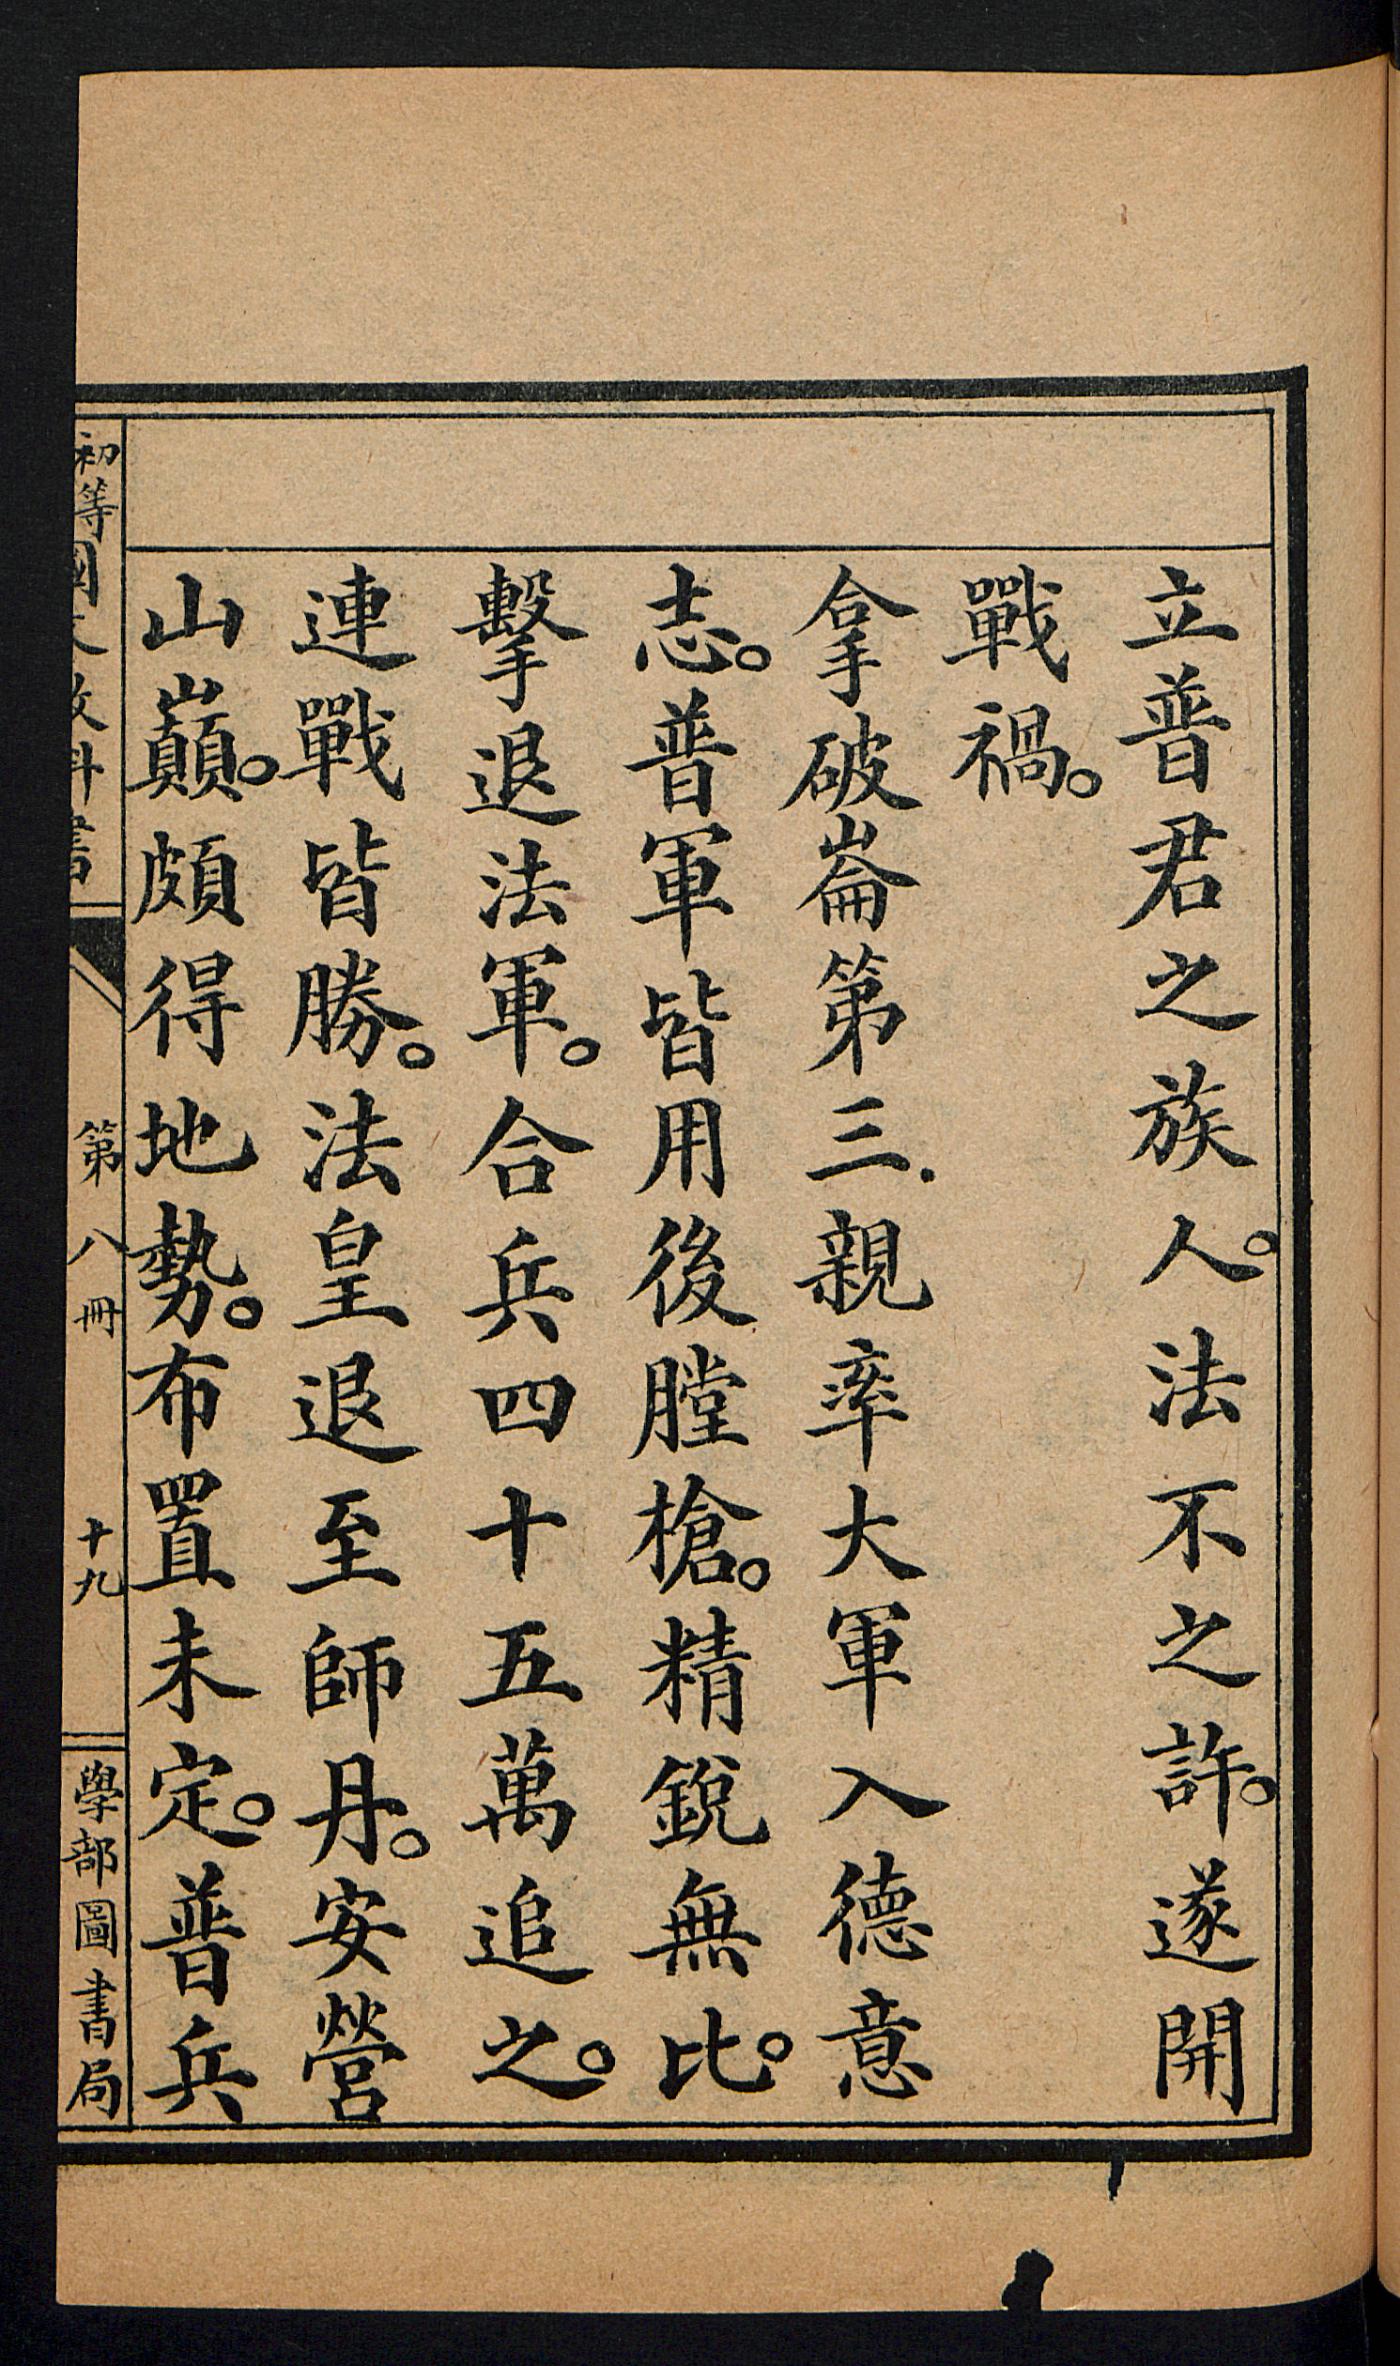 立普君之族人。法不之許。遂開
戰禍。
拿破崙第三.親率大軍入德意
志。普軍皆用後膛槍。精銳無比。
擊退法軍。合兵四十五萬追之。
連戰皆勝。法皇退至師丹。安營
山巔。頗得地勢。布置未定。普兵
初等國文教科書
第八冊
十九
學部圖書局